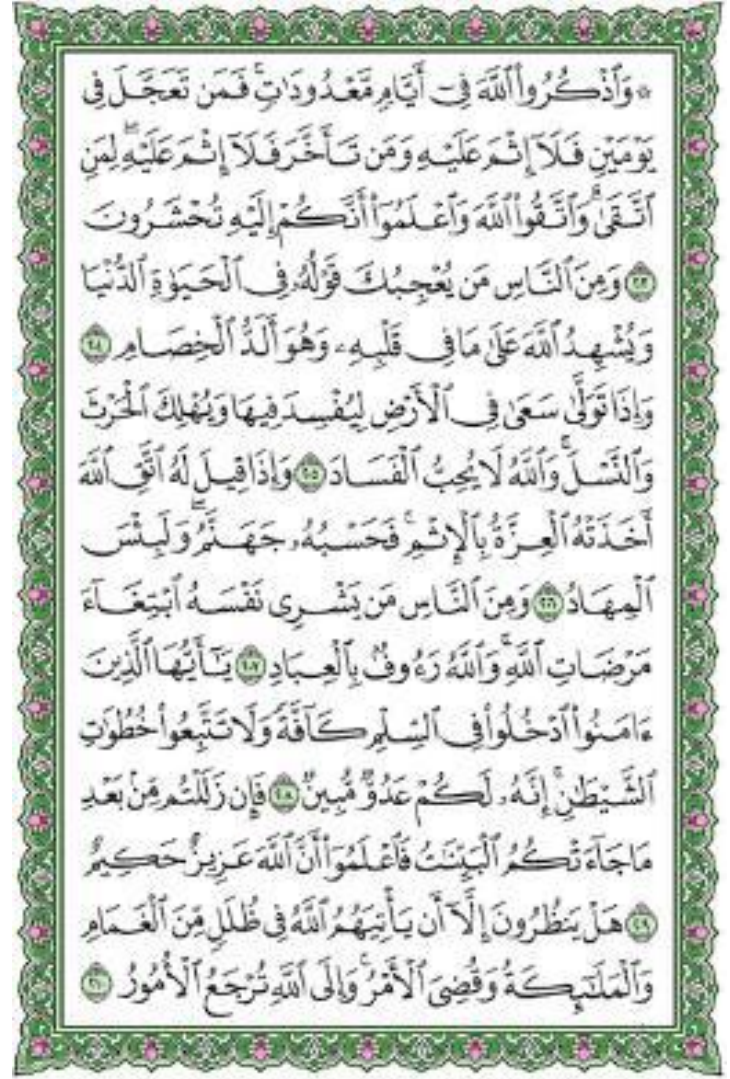 ۞ وَٱذْكُرُوا۟ ٱللَّهَ فِىٓ أَيَّامٍ مَّعْدُودَٰتٍ ۚ فَمَن تَعَجَّلَ فِى
يَوْمَيْنِ فَلَآ إِثْمَ عَلَيْهِ وَمَن تَأَخَّرَ فَلَآ إِثْمَ عَلَيْهِ ۖ لِمَنِ
ٱتَّقَىٰ ۗ وَٱتَّقُوا۟ ٱللَّهَ وَٱعْلَمُوٓا۟ أَنَّكُمْ إِلَيْهِ تُحْشَرُونَ
٢٠٣ وَمِنَ ٱلنَّاسِ مَن يُعْجِبُكَ قَوْلُهُۥ فِى ٱلْحَيَوٰةِ ٱلدُّنْيَا
وَيُشْهِدُ ٱللَّهَ عَلَىٰ مَا فِى قَلْبِهِۦ وَهُوَ أَلَدُّ ٱلْخِصَامِ ٢٠٤
وَإِذَا تَوَلَّىٰ سَعَىٰ فِى ٱلْأَرْضِ لِيُفْسِدَ فِيهَا وَيُهْلِكَ ٱلْحَرْثَ
وَٱلنَّسْلَ ۗ وَٱللَّهُ لَا يُحِبُّ ٱلْفَسَادَ ٢٠٥ وَإِذَا قِيلَ لَهُ ٱتَّقِ ٱللَّهَ
أَخَذَتْهُ ٱلْعِزَّةُ بِٱلْإِثْمِ ۚ فَحَسْبُهُۥ جَهَنَّمُ ۚ وَلَبِئْسَ
ٱلْمِهَادُ ٢٠٦ وَمِنَ ٱلنَّاسِ مَن يَشْرِى نَفْسَهُ ٱبْتِغَآءَ
مَرْضَاتِ ٱللَّهِ ۗ وَٱللَّهُ رَءُوفٌۢ بِٱلْعِبَادِ ٢٠٧ يَٰٓأَيُّهَا ٱلَّذِينَ
ءَامَنُوا۟ ٱدْخُلُوا۟ فِى ٱلسِّلْمِ كَآفَّةً وَلَا تَتَّبِعُوا۟ خُطُوَٰتِ
ٱلشَّيْطَٰنِ ۚ إِنَّهُۥ لَكُمْ عَدُوٌّ مُّبِينٌ ٢٠٨ فَإِن زَلَلْتُم مِّنۢ بَعْدِ
مَا جَآءَتْكُمُ ٱلْبَيِّنَٰتُ فَٱعْلَمُوٓا۟ أَنَّ ٱللَّهَ عَزِيزٌ حَكِيمٌ
٢٠٩ هَلْ يَنظُرُونَ إِلَّآ أَن يَأْتِيَهُمُ ٱللَّهُ فِى ظُلَلٍ مِّنَ ٱلْغَمَامِ
وَٱلْمَلَٰٓئِكَةُ وَقُضِىَ ٱلْأَمْرُ ۚ وَإِلَى ٱللَّهِ تُرْجَعُ ٱلْأُمُورُ ٢١٠